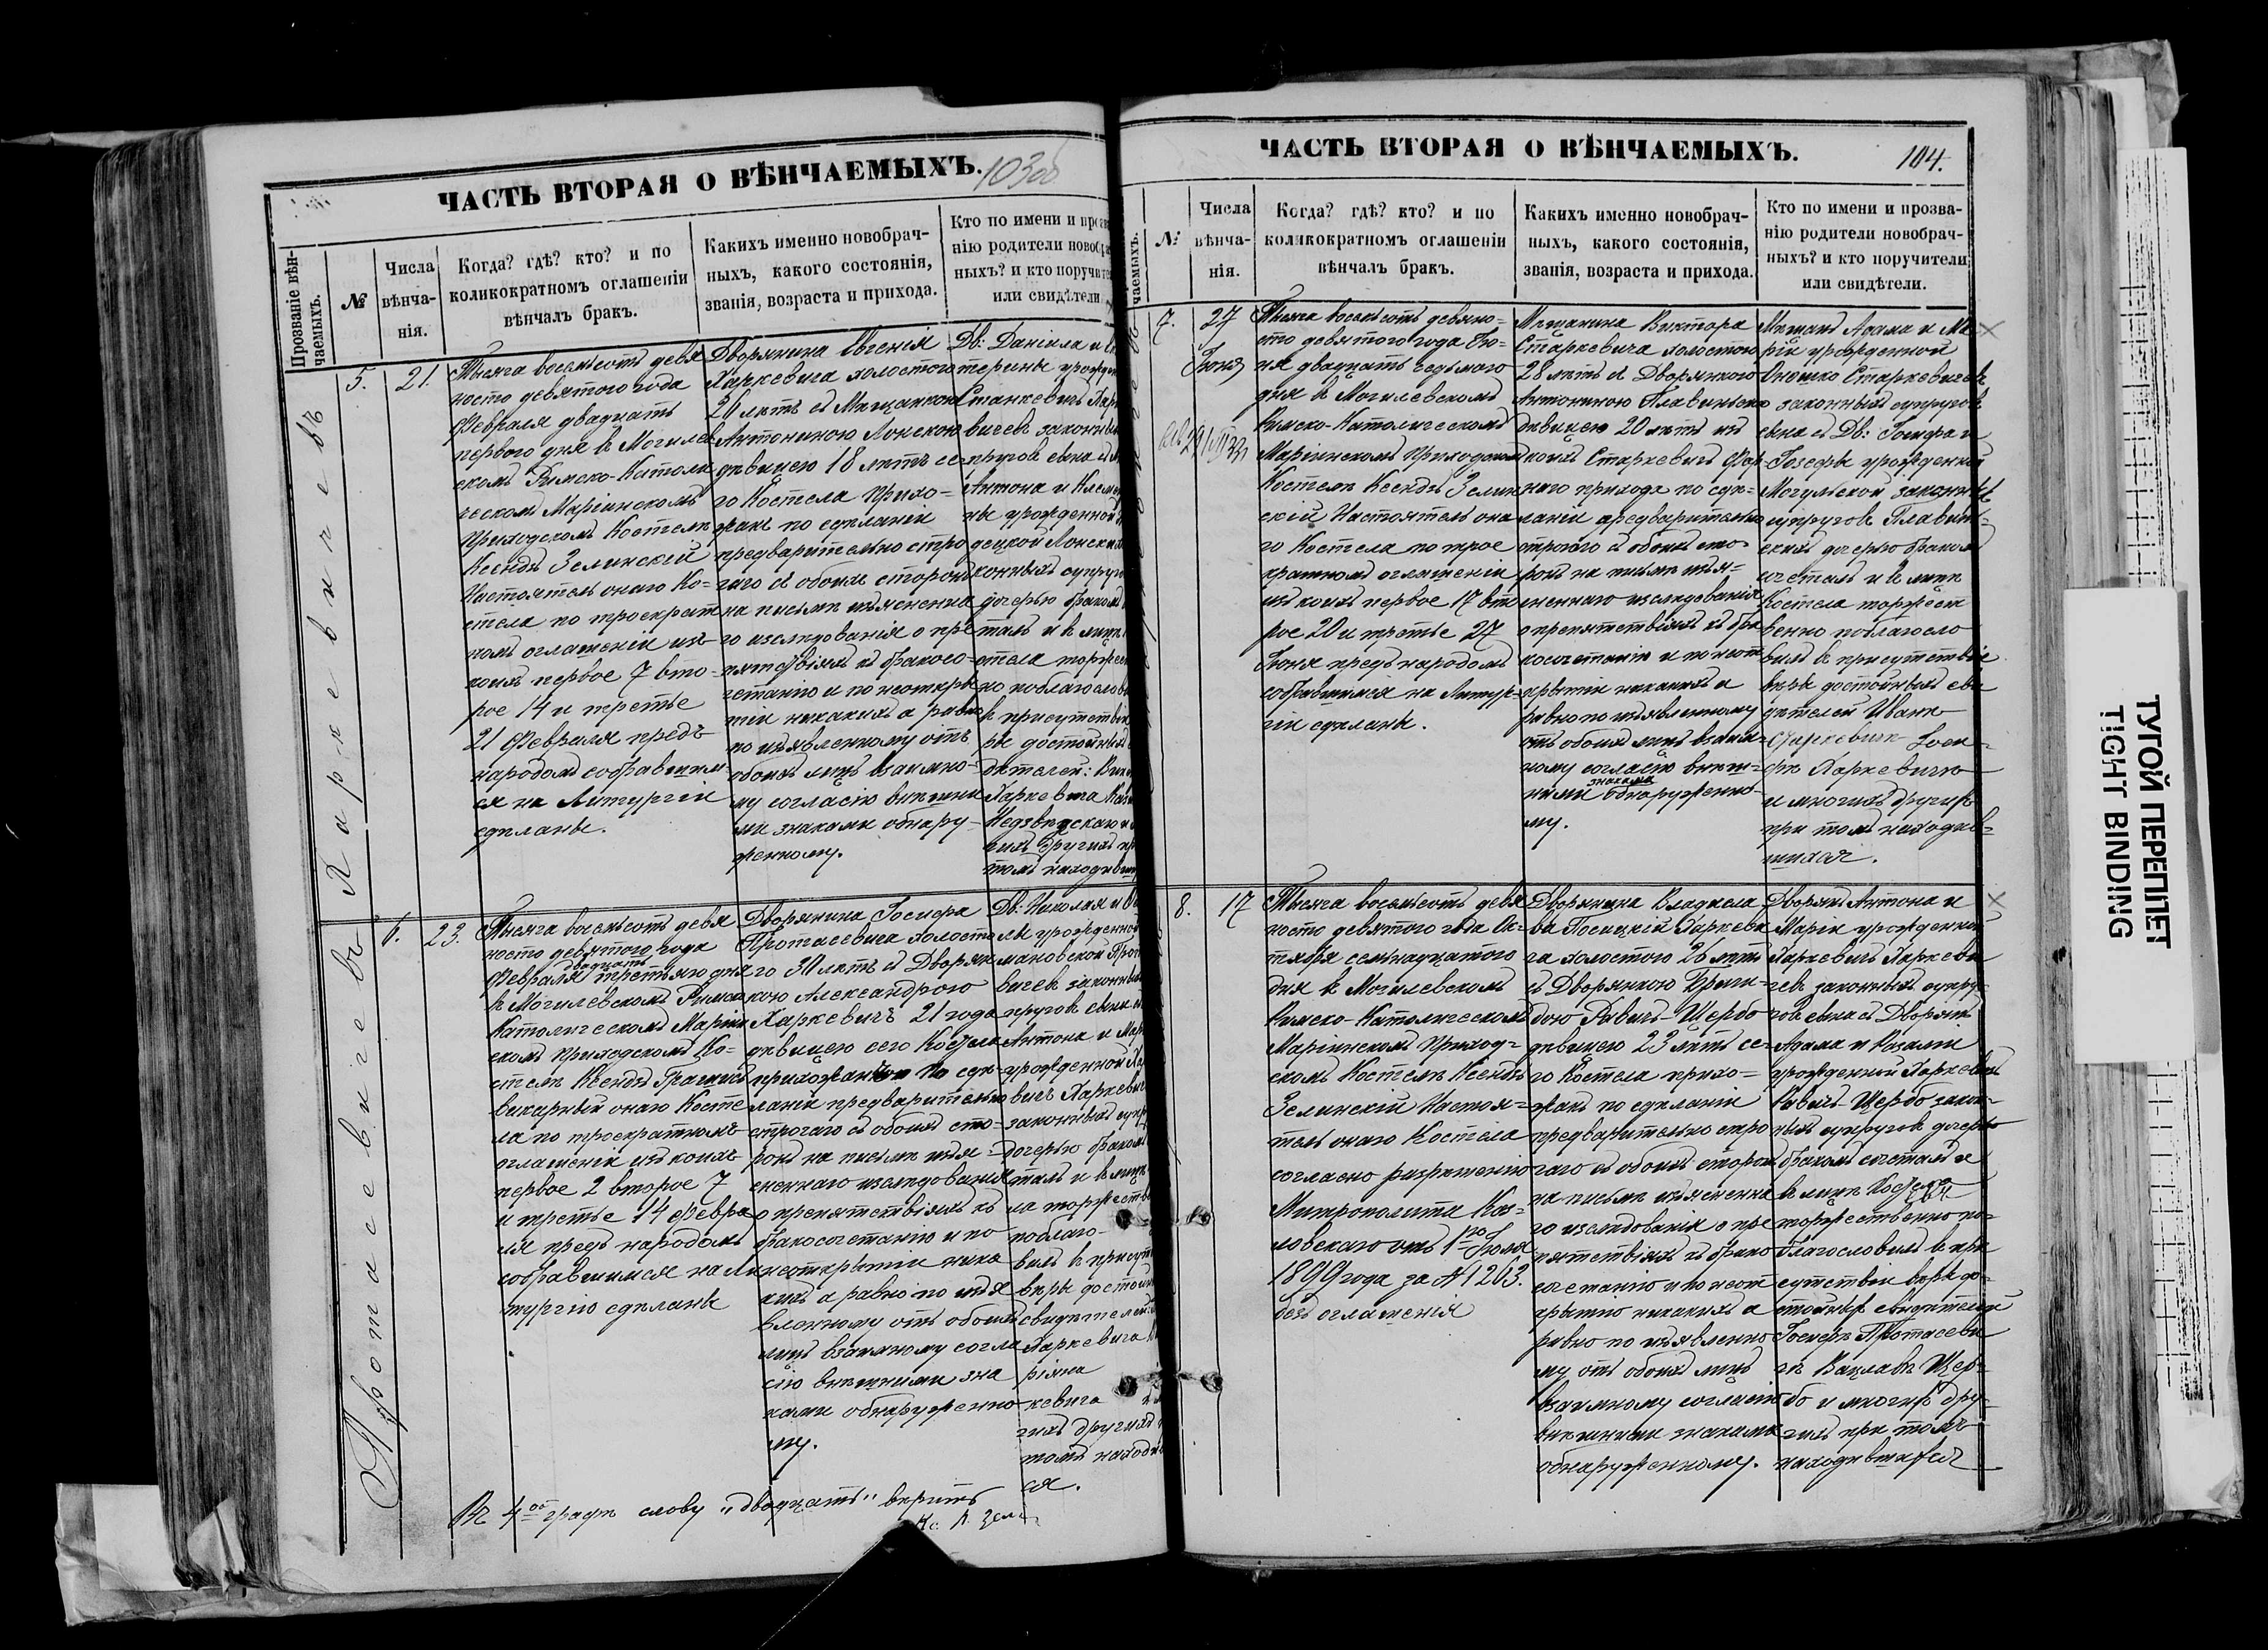 ЧАСТЬ ВТОРАЯ О ВѢНЧАЕМЫХЪ.
103об
Прозваніе вѣн-
чаемыхъ.
№
Числа
вѣнча-
нія.
Когда? гдѣ? кто? и по
коликократномъ оглашеніи
вѣнчалъ бракъ.
Какихъ именно новобрач-
ныхъ, какого состоянія,
званія, возраста и прихода.
Кто по имени и прозва
нію родители новобр
ныхъ? и кто поручите
или свидѣтели
Харкевичевъ
5.
21.
Тысяча восемьсотъ девя
носто девятого года
Февраля двадцать
первого дня въ Могилев
скомъ Римско-Католи
ческомъ Маріинскомъ
Приходскомъ Костелѣ
Ксендзъ Зелинскій
Настоятель онаго Ко-
стела по троекрат
номъ оглашеніи изъ
коихъ первое 7 вто-
рое 14 и третье
21 Февраля предъ
народомъ собравшим
ся на Литургіи
сдѣланы.
Дворянина Евгенія
Харкевича холостого
26 лѣтъ съ Мѣщанкою
Антониною Лонскою
дѣвицею 18 лѣтъ се-
го Костела Прихо-
жанъ по сдѣланіи
предварительно стро
гаго съ обоихъ сторонъ
на письмѣ изъясненна
го изслѣдованія о пре
пятствіяхъ къ бракосо-
четанію и по неоткры
тіи никакихъ а равно
по изъявленному отъ
обоихъ лицъ взаимно-
му согласію внѣшни
ми знаками обнару-
женному.
Дв: Даніила и
терины урожден
Станкевичъ Хар
вичевъ законны
пруговъ сына съ
Антона и Клем
ны урожденной
децкой Лонских
конныхъ супруг
дочерью бракомъ
талъ и въ лицѣ
стела торжес
но поблагослов
въ присутствіи
ры достойныхъ
дѣтелей: Вик
Харкевича
Недзвѣдскаго и
гихъ другихъ п
томъ находивш
Протасевичевъ
6.
23.
Тысяча восемьсотъ девя
носто девятого года
двадцать
Февраля третьяго дня
въ Могилевскомъ Римско
Католическомъ Маріин
скомъ приходскомъ Ко-
стелѣ Ксендзъ
викарный онаго Косте
ла по троекратномъ
оглашеніи изъ коихъ
первое 2 второе 7
и третье 14 Февра
ля предъ народомъ
собравшимся на Ли
тургію сдѣланы
Дворянина Іосифа
Протасевича холосто
го 30 лѣтъ съ Дворян
кою Александрою
Харкевичъ 21 года
дѣвицею сего Костела
прихожанъ По сдѣ-
ланіи предварительно
строгаго съ обоихъ сто-
ронъ на письмѣ изъя-
сненнаго изслѣдованія
о препятствіяхъ къ
бракосочетанію и по
неоткрытіи ника
кихъ а равно по изъя
вленному отъ обоихъ
лицъ взаимному согла
сію внѣшними зна
ками обнаруженно
му.
Дв: Николая и
урожденной
мановской Про
вичевъ законны
пруговъ сына съ
Антона и Мар
урожденной Ха
вичъ Харкевич
законныхъ супр
дочерью бракомъ
талъ и въ лицѣ
ла торжестве
поблаго-
вилъ въ присут
вѣры достой
свидѣтелей:
Харкевича

кевича
гихъ другихъ
томъ находи
ся.
Въ 4ой графѣ слову „двадцать" вѣрить
Кс. К. Зели
ЧАСТЬ ВТОРАЯ О ВѢНЧАЕМЫХЪ.
104.
чаемыхъ.
№
Числа
вѣнча-
нія.
Когда? гдѣ? кто? и по
коликократномъ оглашеніи
вѣнчалъ бракъ.
Какихъ именно новобрач-
ныхъ, какого состоянія,
званія, возраста и прихода.
Кто по имени и прозва-
нію родители новобрач-
ныхъ? и кто поручители
или свидѣтели.
7.
27
Іюня
Тысяча восемьсотъ девяно-
сто девятого года Ію-
ня двадцать седьмаго
дня въ Могилевскомъ
Римско-Католическомъ
Маріинскомъ Приходскомъ
Костелѣ Ксендзъ Зелин
скій Настоятель она
го Костела по трое
кратномъ оглашеніи
изъ коихъ первое 17 вто
рое 20 и третье 27
Іюня предъ народомъ
собравшимся на Литур-
гіи сдѣланы.
Мѣщанина Виктора
Старкевича холостого
28 лѣтъ съ Дворянкою
Антониною Плавинско
дѣвицею 20 лѣтъ изъ
коихъ Старкевичъ
наго прихода по сдѣ-
ланіи предварительно
строгаго съ обоихъ сто-
ронъ на письмѣ изъя-
сненнаго изслѣдованія
о препятствіяхъ къ бра
косочетанію и по неот
крытіи никакихъ а
равно по изъявленному
отъ обоихъ лицъ взаим-
ному согласію внѣш-
знаками
ними обнаруженно-
му.
Мѣщанъ Адама и Ма
ріи урожденной
Онюшко Старкевичевъ
законныхъ супруговъ
сына съ Дв: Іосифа и
Іозефы урожденной
Могульской законныхъ
супруговъ Плавин-
скихъ дочерью бракомъ
сочеталъ и въ лицѣ
Костела торжест
венно поблагосло
вилъ въ присутствіе
вѣры достойныхъ сви
дѣтелей Ивана
Старкевича Іоси-
фа Харкевича
и многихъ другихъ
при томъ находив-
шихся.
8.
17
Тысяча восемьсотъ девя
носто девятого года Ок-
тября семнадцатого
дня въ Могилевскомъ
Римско-Католическомъ
Маріинскомъ Приход-
скомъ Костелѣ Ксендзъ
Зелинскій Настоя-
тель онаго Костела
согласно разрѣшенію
Митрополита Коз-
ловскаго отъ 1го Іюля
1899 года за № 1203.
безъ оглашенія
Дворянина Владисла
ва Посицкій Харкеви
ча холостого 26 лѣтъ
съ Дворянкою Бриги-
дою Равичъ-Щербо
дѣвицею 23 лѣтъ се-
го Костела прихо-
жанъ по сдѣланіи
предварительно стро
гаго съ обоихъ сторон
на письмѣ изъясненна
го изслѣдованія о пре
пятствіяхъ къ брако
сочетанію и по неот
крытію никакихъ а
равно по изъявленно
му отъ обоихъ лицъ
взаимному согласію
внѣшними знаками
обнаруженному.
Дворянъ Антона и
Маріи урожденной
Харкевичъ Харкеви
чев законныхъ супру-
говъ сына съ Дворянъ
Адама и Розаліи
урожденной Харкевичъ
Равичъ-Щербо закон-
ныхъ супруговъ дочерью
бракомъ сочеталъ и
въ лицѣ Костела
торжественно по-
благословилъ въ при
сутствіи вѣры до-
стойныхъ свидѣтелей
Іосифа Протасеви
ча Вацлава Щер-
бо и многихъ дру-
гихъ при томъ
находившихся
ТУГОЙ ПЕРЕПЛЕТ
TIGHT BINDING